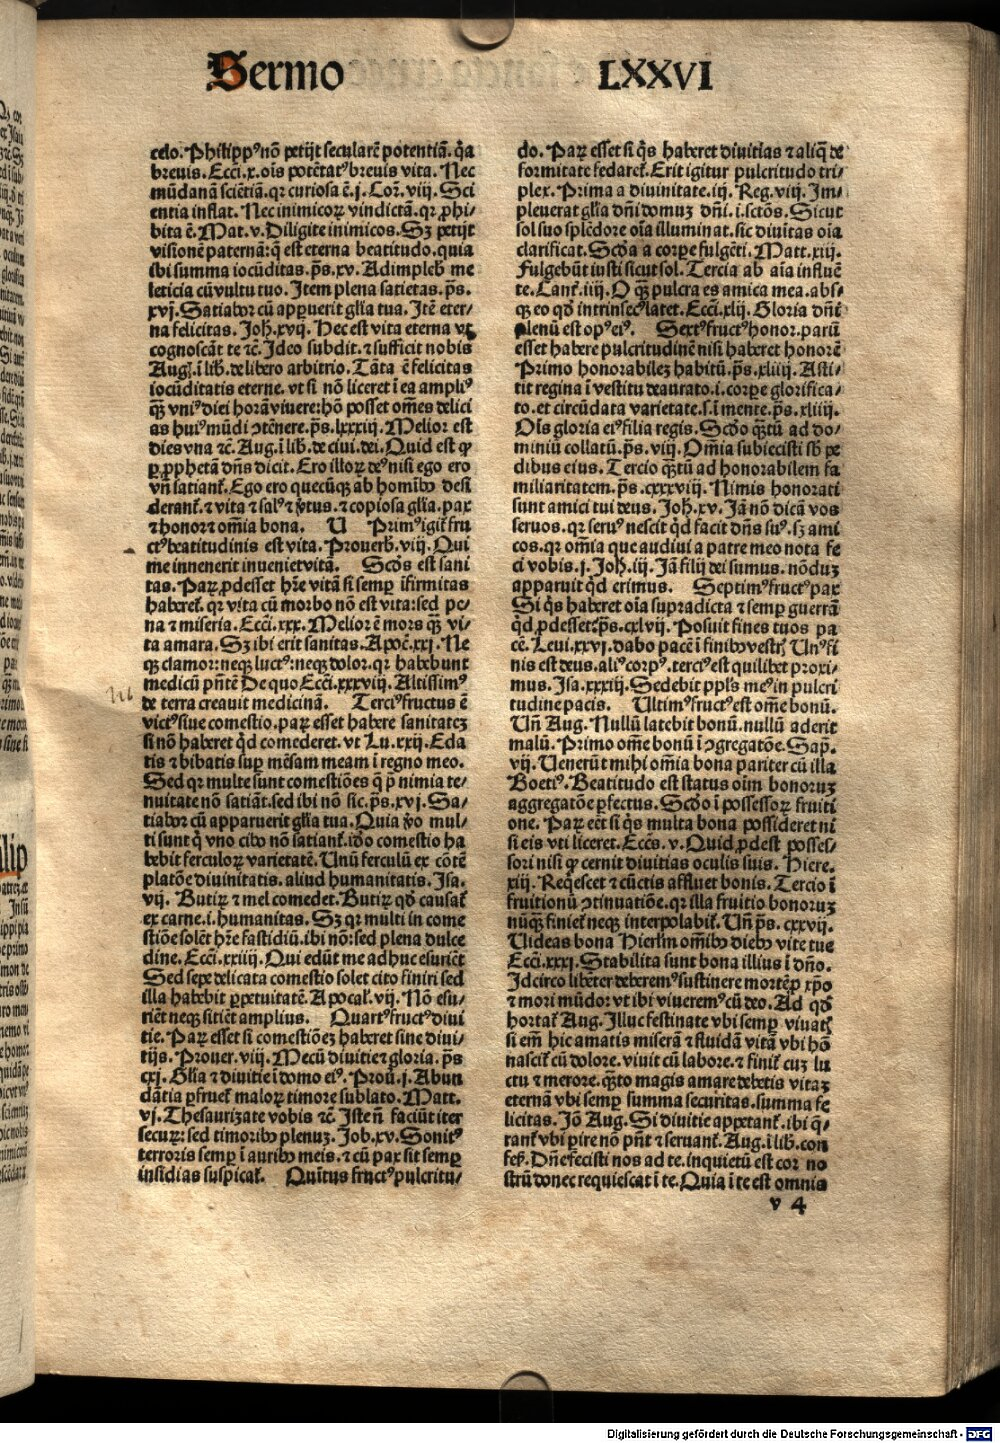 Sermo LXXVI
celo. Philippꝰ nō petijt secularē potentiā. q̇a
breuis. Ecci. x. oīs potētatꝰ breuis vita. Nec
mūdanā sciētiā. qr curiosa ē. j. Cor. viij. Sci
entia inflat. Nec inimicoꝝ vindictā. qr ꝓhi⸗
bita ē. Mat. v. Diligite inimicos. Sꝫ petijt
visionē paternā: q̄ est eterna beatitudo. quia
ibi summa iocūditas. p̄s. xv. Adimpleb̄ me
leticia cū vultu tuo. Item plena satietas. p̄s.
xvj. Satiabor cū apꝑuerit gl̄ia tua. Itē eter⸗
na felicitas. Joh. xvij. Hec est vita eterna vt
cognoscāt te ⁊c̄. Ideo subdit. ⁊ sufficit nobis
Aug. ī lib. de libero arbitrio. Tāta ē felicitas
iocūditatis eterne. vt si nō liceret ī ea ampliꝰ
qꝫ̄ vniꝰ diei horā viuere: hō posset om̄es delici
as huiꝰ mūdi ꝯtēnere. p̄s. lxxxiij. Melior est
dies vna ⁊c̄. Aug. ī lib. de ciui. dei. Quid est ꝙ
ꝑ ꝓphetā dn̄s dicit. Ero illoꝝ deꝰ nisi ego ero
vn̄ satianť. Ego ero quecūqꝫ ab homībꝰ desi
deranť. ⁊ vita ⁊ salꝰ ⁊ v̇tus. ⁊ copiosa gl̄ia. pax
⁊ honor ⁊ om̄ia bona. U Primꝰ igiť fru
ctꝰ beatitudinis est vita. Prouerb. viij. Qui
me inuenerit inueniet vitā. Scd̄s est sani
tas. Paꝝ ꝓdesset hr̄e vitā si semꝑ īfirmitas
habereť. qr vita cū morbo nō est vita: sed pe⸗
na ⁊ miseria. Ecci. xxx. Melior ē mors qꝫ̄ vi⸗
ta amara. Sꝫ ibi erit sanitas. Apoc̄. xxj. Ne
qꝫ clamor: neqꝫ luctꝰ: neqꝫ dolor. qr habebunt
medicū pn̄tē De quo Ecci. xxxviij. Altissimꝰ
de terra creauit medicinā. Terciꝰ fructus ē
victꝰ siue comestio. paꝝ esset habere sanitateꝫ
si nō haberet qd̄ comederet. vt Lu. xxij. Eda
tis ⁊ bibatis suꝑ mēsam meam ī regno meo.
Sed qr multe sunt comestiōes q̄ p̄ nimia te⸗
nuitate nō satiāt. sed ibi nō sic. p̄s. xvj. Sa⸗
tiabor cū apparuerit gl̄ia tua. Quia v̇o mul⸗
ti sunt q̇ vno cibo nō satianť. id̄o comestio ha
bebit ferculoꝝ varietatē. Unū ferculū ex cōtē
platōe diuinitatis. aliud humanitatis. Isa.
vij. Butiꝝ ⁊ mel comedet. Butiꝝ qd̄ causať
ex carne. i. humanitas. Sꝫ qr multi in come
stiōe solēt hr̄e fastidiū. ibi nō: sed plena dulce
dine. Ecci. xxiiij. Qui edūt me adhuc esuriēt
Sed sepe delicata comestio solet cito finiri sed
illa habebit ꝑpetuitatē. Apocal. vij. Nō esu⸗
riēt neqꝫ sitiēt amplius. Quartꝰ fructꝰ diui
tie. Paꝝ esset si comestiōeꝫ haberet sine diui⸗
tijs. Prouer. viij. Mecū diuitie ⁊ gloria. p̄s
cxj. Gl̄ia ⁊ diuitie ī domo eiꝰ. Prou̇. j. Abun
dātia ꝑfrueť maloꝝ timore sublato. Matt.
vj. Thesaurizate vobis ⁊c̄. Iste n̄ faciūt iter
secuꝝ: sed timoribꝰ plenuꝫ. Job. xv. Sonitꝰ
terroris semꝑ ī auribꝰ meis. ⁊ cū pax sit semꝑ
insidias suspicať. Quītus fructꝰ pulcritu⸗
do. Paꝝ esset si q̇s haberet diuitias ⁊ aliq̄ de
formitate fedareť. Erit igitur pulcritudo tri⸗
plex. Prima a diuinitate. iij. Reg. viij. Im⸗
pleuerat gl̄ia dn̄i domuꝫ dn̄i. i. sctōs. Sicut
sol suo splēdore oīa illuminat. sic diuītas oīa
clarificat. Scd̄a a corꝑe fulgēti. Matt. xiij.
Fulgebūt iusti sicut sol. Tercia ab aīa influē
te. Canť. iiij. O qꝫ̄ pulcra es amica mea. abs⸗
qꝫ eo qd̄ intrinsecꝰ latet. Ecci. xlij. Gloria dn̄i
plenū est opꝰ eiꝰ. Sextꝰ fructꝰ honor. parū
esset habere pulcritudinē nisi haberet honorē
Primo honorabileꝫ habitū. p̄s. xliiij. Asti⸗
tit regina ī vestitu deaurato. i. corꝑe glorifica⸗
to. et circūdata varietate. s. ī mente. p̄s. xliiij.
Oīs gloria ei⁹ filia regis. Scd̄o qꝫ̄tū ad do⸗
miniū collatū. p̄s. viij. Om̄ia subiecisti sb̄ pe
dibus eius. Tercio qꝫ̄tū ad honorabilem fa
miliaritatem. p̄s. cxxxviij. Nimis honorati
sunt amici tui deus. Joh. xv. Jā nō dicā vos
seruos. qr seruꝰ nescit qd̄ facit dn̄s suꝰ. sꝫ ami
cos. qr om̄ia que audiui a patre meo nota fe
ci vobis. j. Joh. iij. Jā filij dei sumus. nōduꝫ
apparuit qd̄ erimus. Septimꝰ fructꝰ pax
Si q̇s haberet oīa supradicta ⁊ semꝑ guerrā
qd̄ ꝓdesset. p̄s. cxlvij. Posuit fines tuos pa
cē. Leui. xxvj. dabo pacē ī finibꝰ vestris. Unꝰ fi
nis est deus. aliꝰ corpꝰ. terciꝰ est quilibet proxi⸗
mus. Isa. xxxij. Sedebit ppl̄s meꝰ in pulcri
tudine pacis. Ultimꝰ fructꝰ est om̄e bonū.
Un̄ Aug. Nullū latebit bonū. nullū aderit
malū. Primo om̄e bonū ī ꝯgregatōe. Sap̄.
vij. Uenerūt mihi om̄ia bona pariter cū illa
Boetiꝰ. Beatitudo est status oīm bonoruꝫ
aggregatōe ꝑfectus. Scd̄o ī possessoꝝ fruiti
one. Paꝝ eēt si q̇s multa bona possideret ni
si eis vti liceret. Eccs̄. v. Quid ꝓdest posses⸗
sori nisi ꝙ cernit diuitias oculis suis. Hiere.
xiij. Req̇escet ⁊ cūctis affluet bonis. Tercio ī
fruitionū ꝯtinuatiōe. qr illa fruitio bonoruꝫ
nūqꝫ̄ finieť neqꝫ interpolabiť. Un̄ p̄s. cxxvij.
Uideas bona Hierl̄m om̄ibꝰ diebꝰ vite tue
Ecci. xxxj. Stabilita sunt bona illius ī dn̄o.
Idcirco libēter deberemꝰ sustinere mortē ꝓ xp̄o
⁊ mori mūdo: vt ibi viueremꝰ cū deo. Ad qd̄
hortať Aug. Illuc festinate vbi semꝑ viuatꝭ
si em̄ hic amatis miserā ⁊ fluidā vitā vbi hō
nasciť cū dolore. viuit cū labore. ⁊ finiť cuꝫ lu
ctu ⁊ merore. qꝫ̄to magis amare debetis vitaꝫ
eternā vbi semꝑ summa securitas. summa fe
licitas. Jō Aug. Si diuitie appetanť. ibi q̄⸗
ranť vbi ꝑire nō pn̄t ⁊ seruanť. Aug. ī lib. con
fes̄. Dn̄e fecisti nos ad te. inquietū est cor no
strū donec requiescat ī te. Quia ī te est omnia
v 4